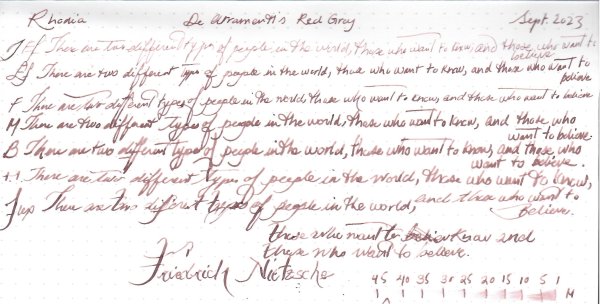 Rhodia De Atramentis Red Gray Sept. 2023
EF There are two different types of people in the world, those who want to know, and those who want to
believe
Ef There are two different types of people in the world, those who want to know, and those who want to
believe
F There are two different types of people in the world, those who want to know, and those who want to believe
M There are two different types of people in the world, those who want to know, and those who
want to believe.
B There are two different types of people in the world, those who want to know, and those who
want to believe.
1.1 There are two different types of people in the world, those who want to know,
There are two different types of people in the world, and those who want to
believe.
those who want to know and
those who want to believe.
Friedrich Nietzsche
45 40 35 30 25 20 15 10 5 1
M